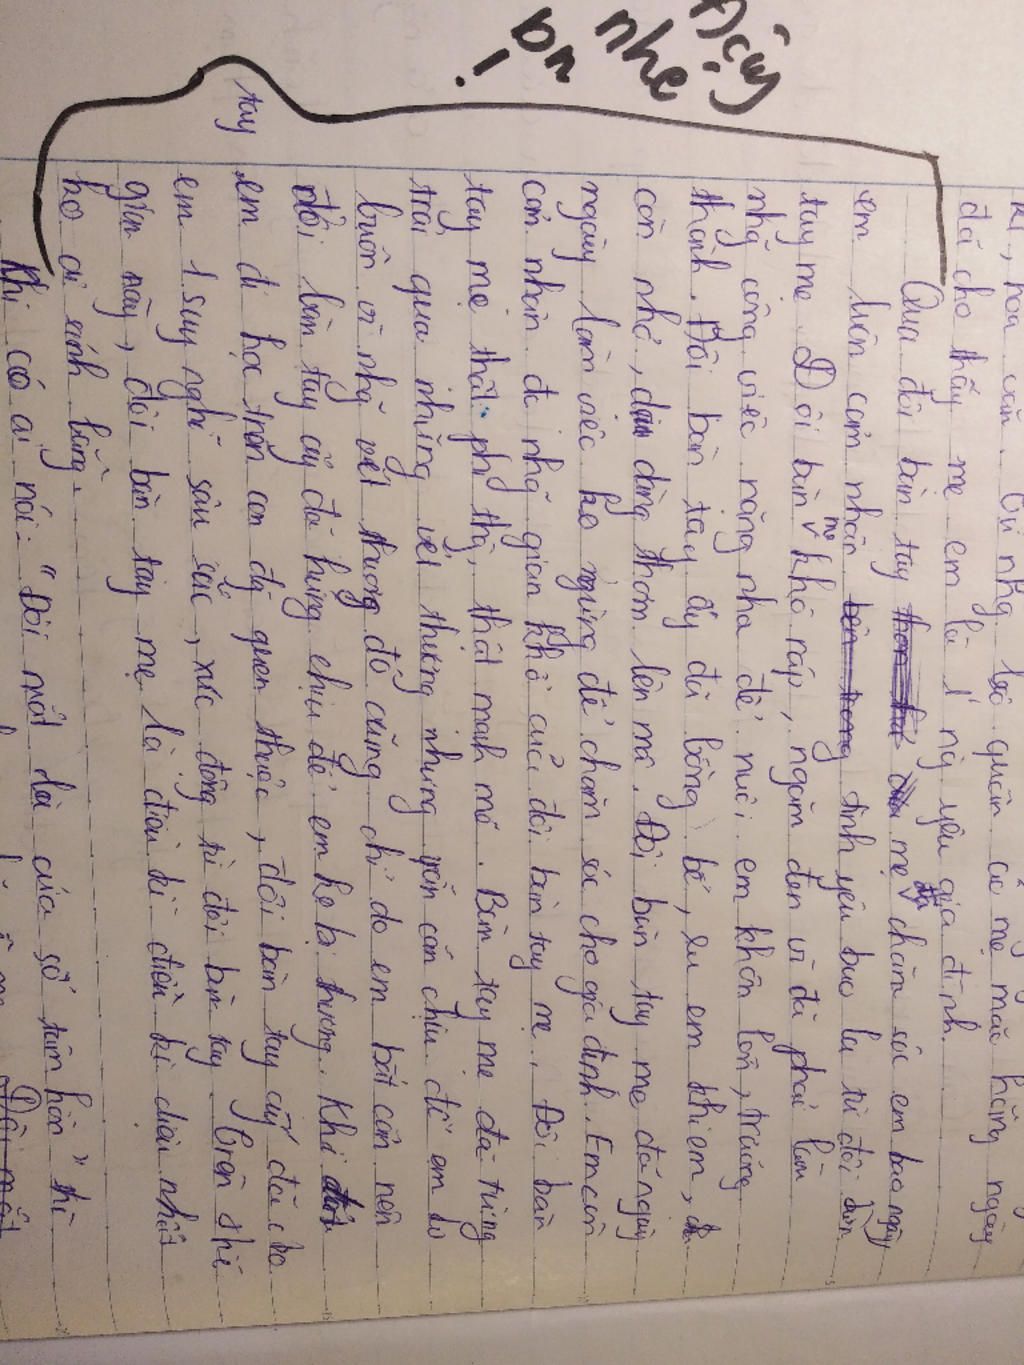 Đây
nhe
bn
!
đã cho thấy mẹ em là 1 ng yêu gia đình.
Qua đôi bàn tay mẹ đã chăm sóc em bao ngày
em luôn cảm nhận tình yêu bao la từ đôi bàn
tay mẹ. Đôi bàn khô ráp, ngăm đen vì đã phải làm
nhg công việc nặng nhà để nuôi em khôn lớn, trưởng
thành. Đôi bàn tay ấy đã bồng bế, ru em khi em
còn nhỏ, dòng thơm lên má. Đôi bàn tay mẹ đã ngày
ngày làm việc ko ngừng để chăm sóc cho gia đình. Em còn
cảm nhận đc nhg gian khổ của đôi bàn tay mẹ. Đôi bàn
tay mẹ thật phi thg, thật mạnh mẽ. Bàn tay mẹ đã từng
trải qua những vết thương nhưng vẫn cắn chịu để em ko
buồn vì nhg vết thương đó cũng chỉ do em bất cẩn nên
đôi bàn tay ấy đã hứng chịu để em ko bị thương. Khi
em đi học trên con đg quen thuộc, đôi bàn tay ấy đã cho
tay
em 1 suy nghĩ sâu sắc, xúc động từ đôi bàn tay. Trên thế
gian này, đôi bàn tay mẹ là điều kì diệu nhất
ko ai sánh bằng.
Khi có ai nói: "Đôi mắt là cửa sổ tâm hồn" thì